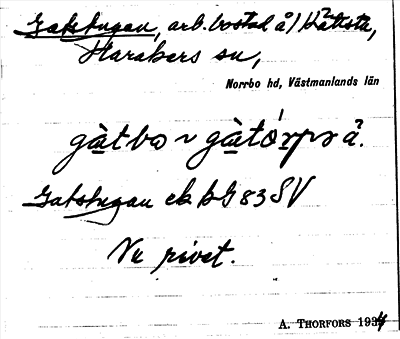 Gatstugan, arb. bostad å) Håtista,
Harakers sn,
Norrbo hd, Västmanlands län
gàtbo ~ gàtórpə å.
Gatstugan ek bG 83 SV
Nu rivet.
A. THORFORS 1934